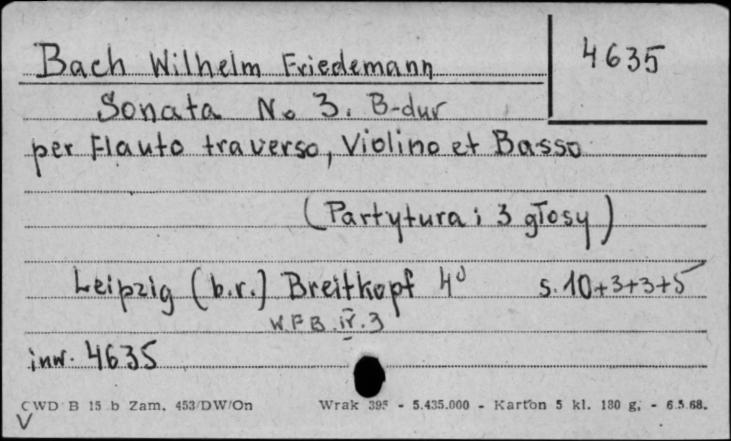 Bach Wilhelm Friedemann
4635
Sonata No 3. B-dur
per Flauto traverso, Violino et Basso
(Partytura i 3 głosy)
Leipzig (b.r.) Breitkopf 4⁰ s. 10+3+3+5
W.F.B. IV. 3
inw. 4635
CWD B 15 b Zam. 453/DW/On Wrak 395 - 5.435.000 - Karton 5 kl. 180 g, - 6.5.68.
V